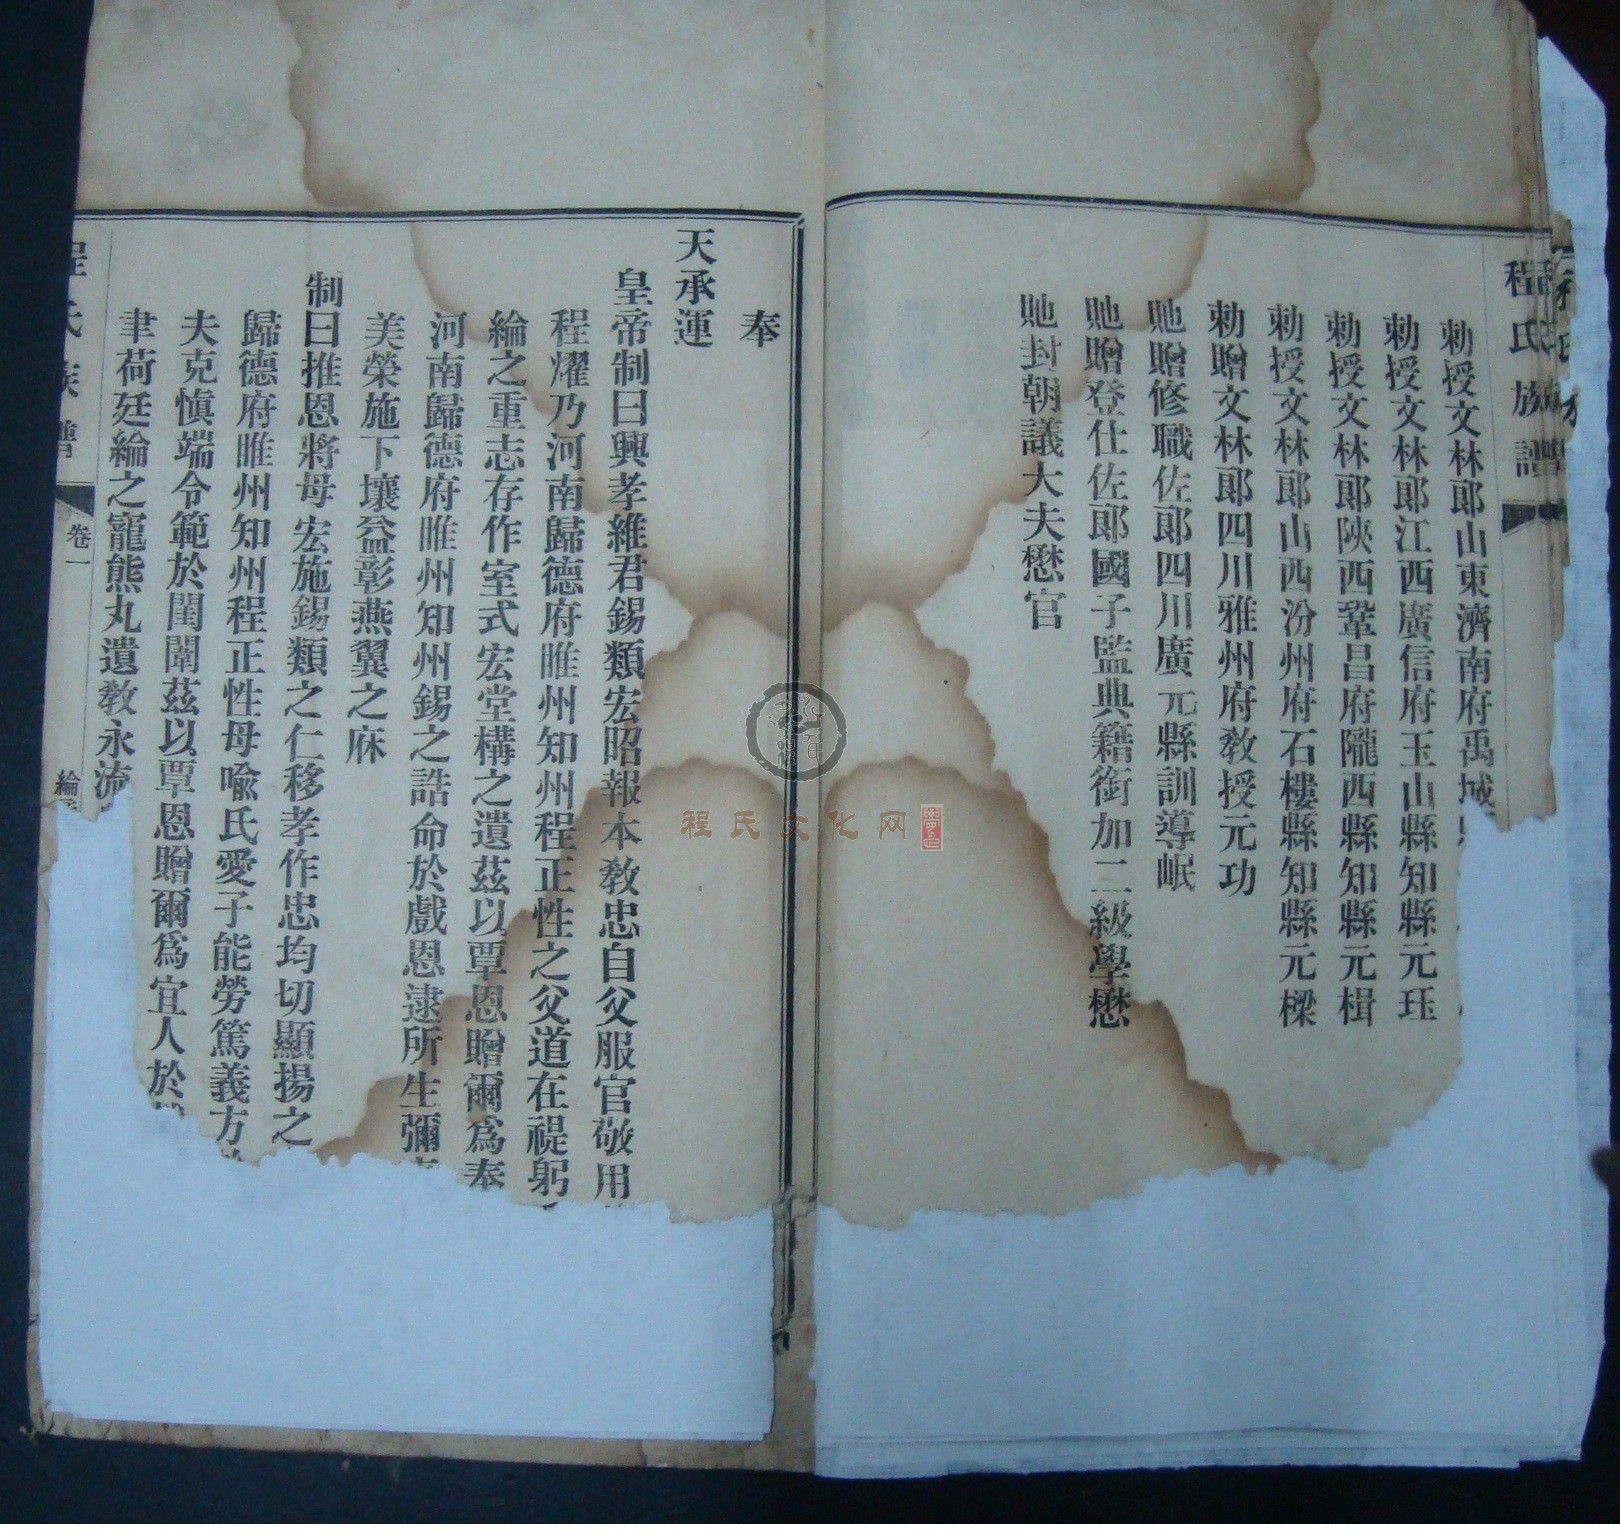 程氏族譜
勅授文林郞山東濟南府禹城
勅授文林郞江西廣信府玉山縣知縣元珏
勅授文林郞陝西鞏昌府隴西縣知縣元楫
勅授文林郞山西汾州府石樓縣知縣元樑
勅贈文林郞四川雅州府敎授元功
貤贈修職佐郞四川廣元縣訓導岷
貤贈登仕佐郞國子監典籍銜加二級學懋
貤封朝議大夫懋官
奉
天承運
皇帝制曰興孝維君錫類宏昭報本敎忠自父服官敬用
程燿乃河南歸德府睢州知州程正性之父道在禔躬
綸之重志存作室式宏堂構之遺茲以覃恩贈爾爲奉
河南歸德府睢州知州錫之誥命於戲恩逮所生彌
美榮施下壤益彰燕翼之庥
制曰推恩將母宏施錫類之仁移孝作忠均切顯揚之
歸德府睢州知州程正性母喩氏愛子能勞篤義方
夫克愼端令範於閨闈茲以覃恩贈爾爲宜人於
聿荷廷綸之寵熊丸遺敎永流
程氏族譜
卷一
綸
程氏文化网